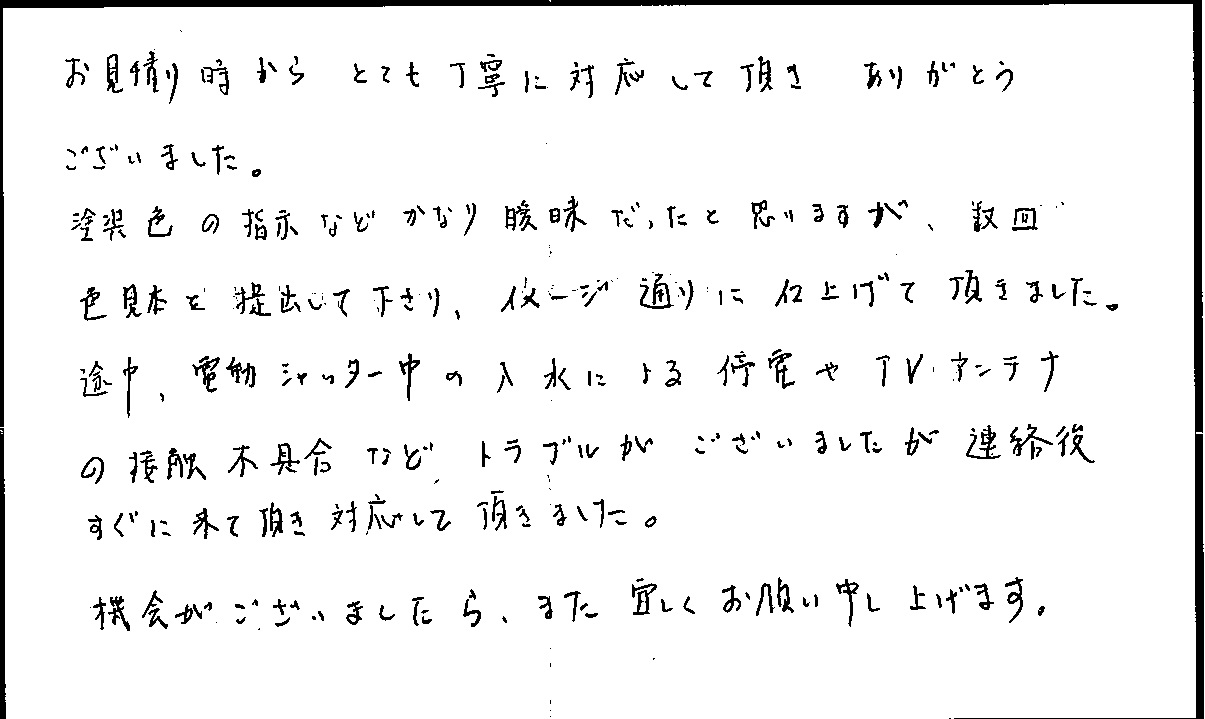 お見積り時から とても丁寧に対応して頂き ありがとう
ございました。
塗装色の指示などかなり曖昧だったと思いますが、数回
色見本を提出して下さり、イメージ通りに仕上げて頂きました。
途中、電動シャッター中の入水による停電やTVアンテナ
の接触不具合など、トラブルがございましたが連絡後
すぐに来て頂き対応して頂きました。
機会がございましたら、また宜しくお願い申し上げます。